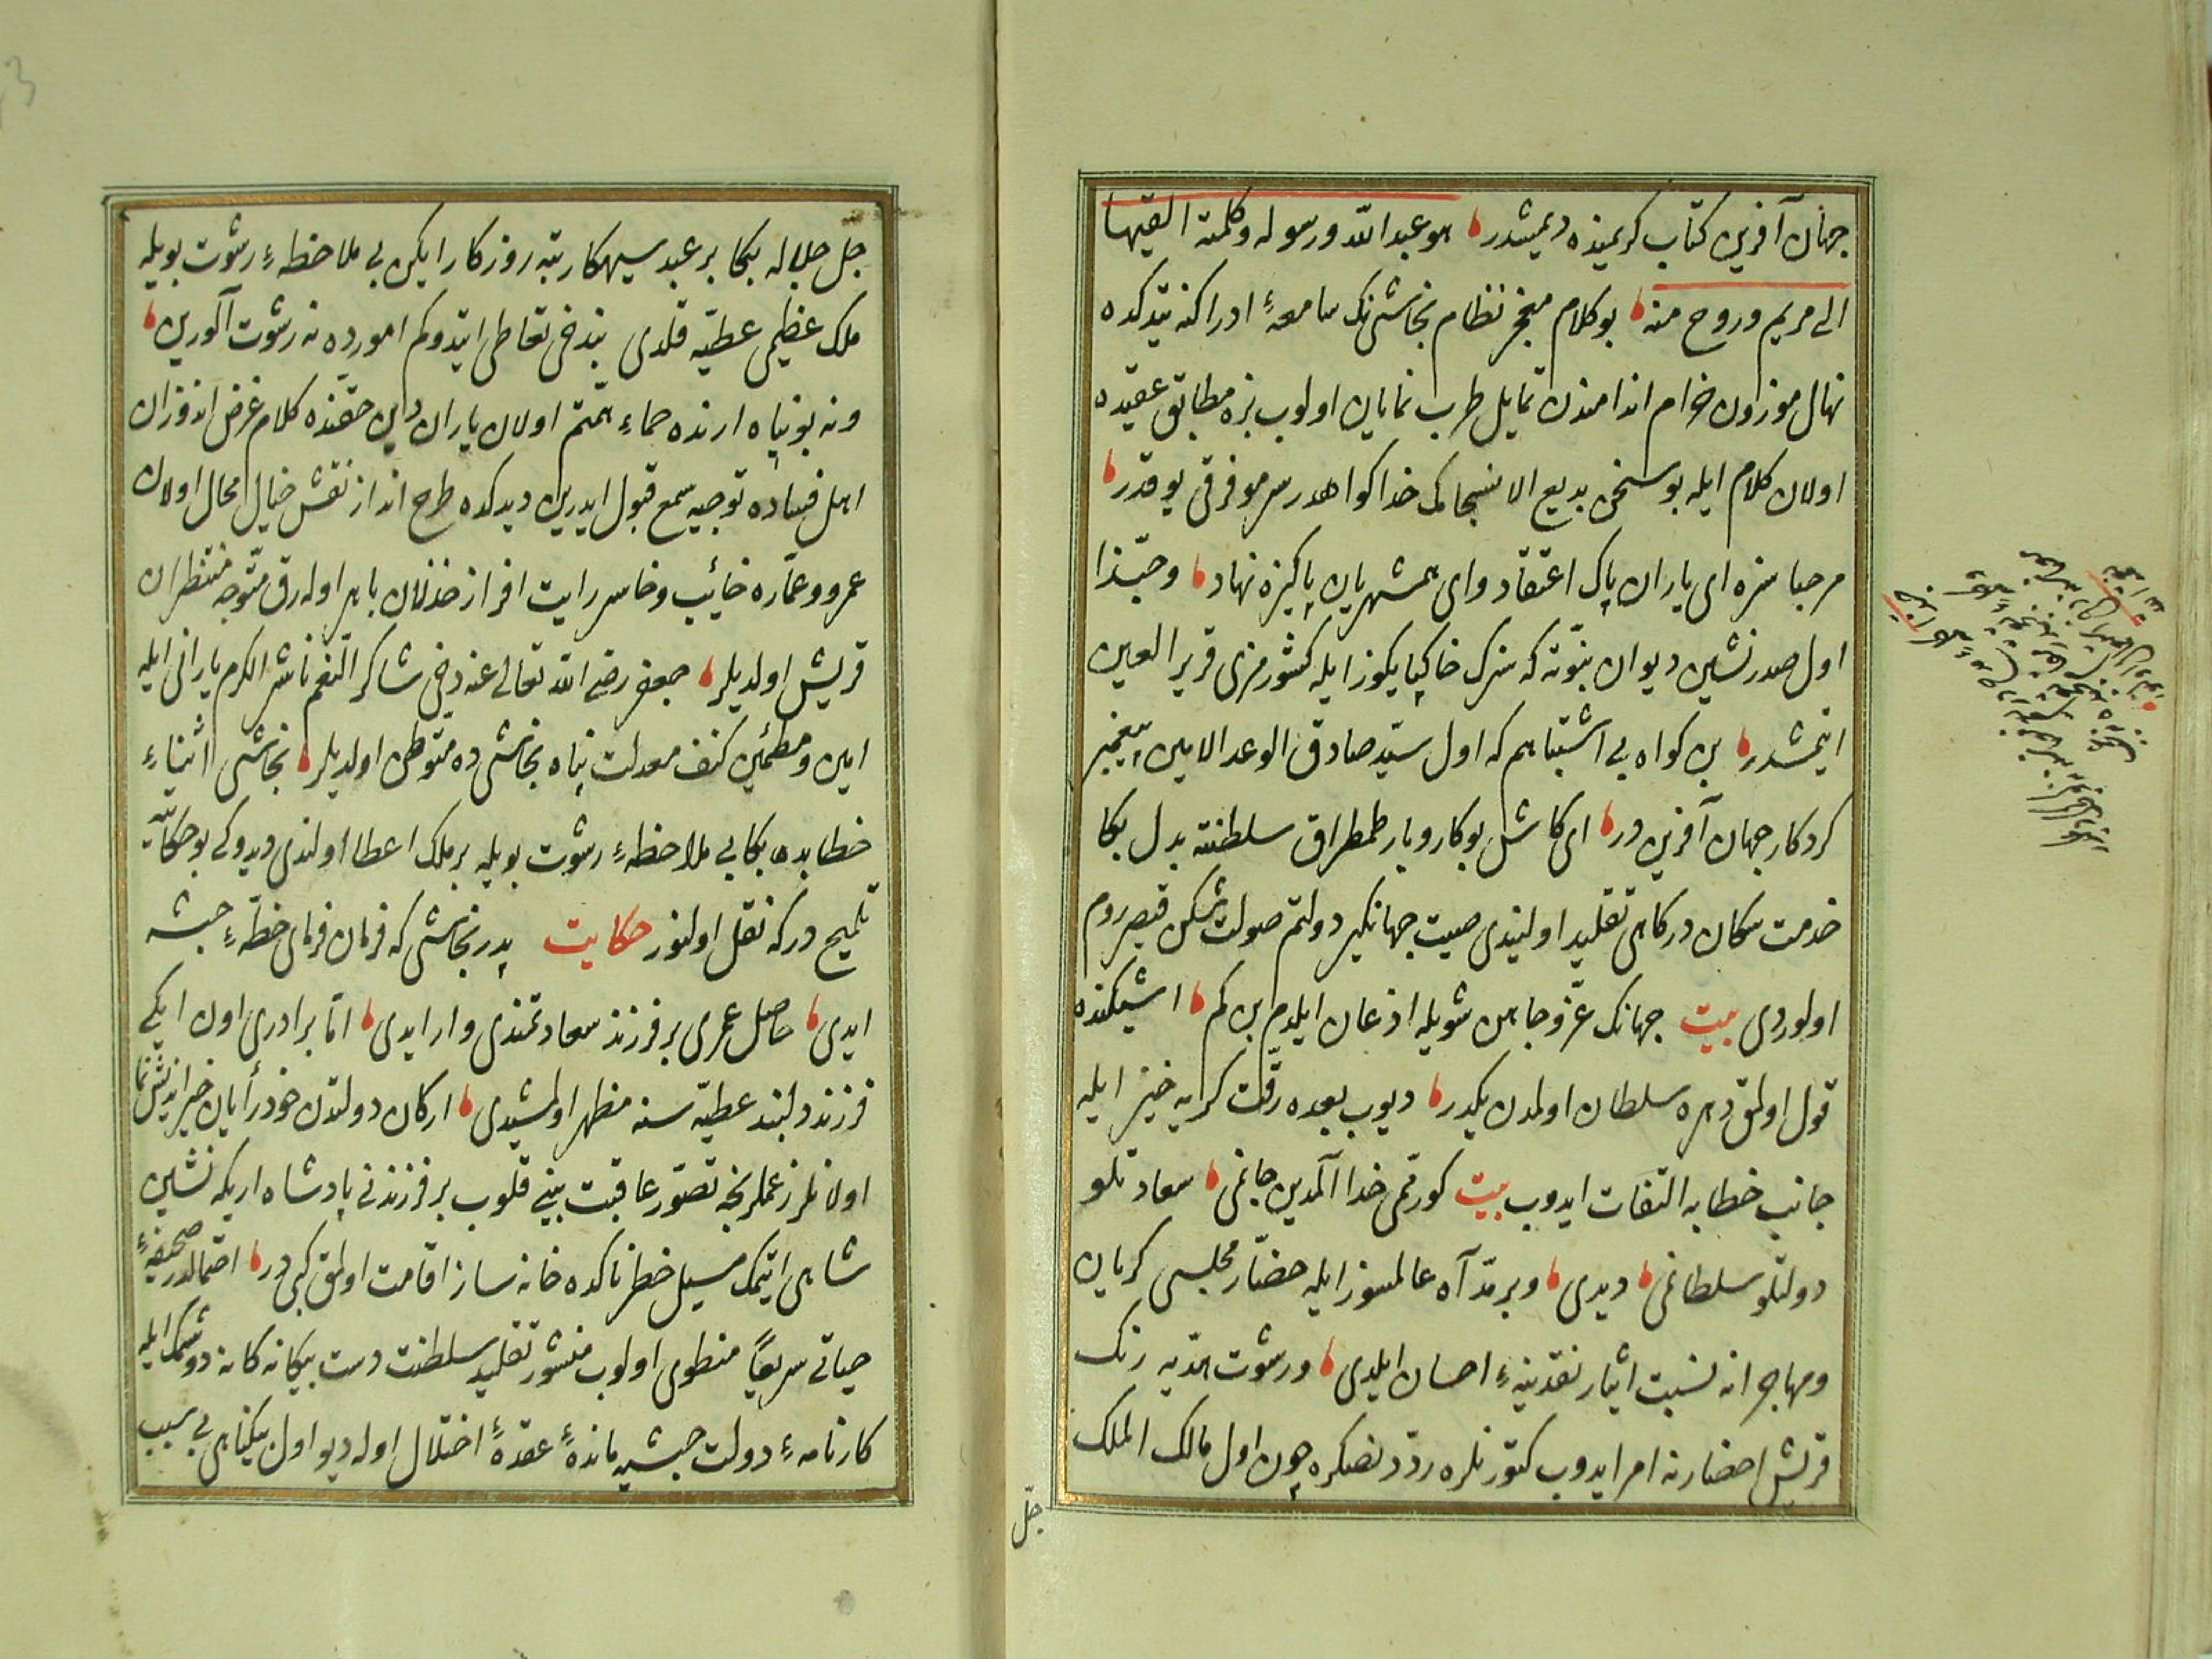 جهان آفرین کتاب کریمنده دیمشدر هو عبد الله ورسوله وکلمته القیها
الی مریم وروح منه بو کلام معجز نظام نجاشی نک سامعهٔ ادراکنه یتدکده
نهال موزون خرام اندامندن تمایل طرب نمایان اولوب بزه مطابق عقیده
اولان کلام ایله بو سخن بدیع الانسجامک خدا کواهدر سر مو فرقی یوقدر
مرحبا سزه ای یاران پاک اعتقاد وای همشهریان پاکیزه نهاد وحبّذا
اول صدر نشین دیوان نبوّته که سزک خاکپایکوز ایله کشور مزی قریر العین
ایتمشدر بن کواه بی اشتباهم که اول سیّد صادق الوعد الامین پیغمبر
کردکار جهان آفرین در ای کاش بو کاروبار طمطراق سلطنته بدل بکا
خدمت سکان درکاهی تقلید اولنیدی صیت جهانکیر دولتم صولت شکن قیصر روم
اولوردی بیت جهانک عزّ وجاهن شویله اذعان ایلدم بن کم اشیکنده
قول اولمق دهره سلطان اولمدن یکدر دیوب بعده رقّت کریه خیز ایله
جانب خطابه التفات ایدوب بیت کورقمی خدا آلمدین جانمی سعادتلو
دولتلو سلطانمی دیدی وبر مدّ آه عالمسوز ایله حضّار مجلسی کریان
ومهاجرانه نسبت ایثار نقدینهٔ احسان ایلدی ورشوت هدّیه رنک
قریش احضارنه امر ایدوب کتورنلره ردّ دنصکره چون اول مالک الملک
جلّ
جل جلاله بکا بر عبد سیهکار تبه روزکار ایکن بی ملاحظهٔ رشوت بویله
ملک عظیمی عطیّه قلدی بن دخی تعاطی ایتدوکم اموروده نه رشوت آلورین
ونه بو پناه ارنده حماء همّتم اولان یاران دین حقنده کلام غرض اندوزان
اهل فساده توجیه سمع قبول ایدرین دیدکده طرح انداز نقش خیال محال اولان
عمرو وعمّاره خائب وخاسر رایت افراز خذلان باهر اوله رق متوجه منتظران
قریش اولدیلر جعفر رضی الله تعالی عنه دخی شاکر النعم ناشر الکرم یارانی ایله
امین ومطمئین کنف معدلت پناه نجاشی ده متوطن اولدیلر نجاشی اثناء
خطابده بکا بی ملاحظهٔ رشوت بویله بر ملک اعطا اولندی دیدوکی بو حکایته
تلمیح در که نقل اولنور حکایت پدر نجاشی که فرمان فرمای خطّهٔ حبشه
ایدی حاصل عمری بر فرزند سعادتمندی وار ایدی امّا برادری اون ایکی
فرزند دلبند عطیّه سنه مظهر اولمشیدی ارکان دولتدن خود رأیان خیر اندیش نما
اولانلر زعملرنجه تصوّر عاقبت بینی قلوب بر فرزندنی پادشاه اریکه نشین
شاهی ایتمک مسیل خطرناکده خانه ساز اقامت اولمق کبی در احتمالدر صحیفهٔ
حیاتی سریعاً منطوی اولوب منشور تقلید سلطنت دست بیکانه کانه دوشمک ایله
کارنامهٔ دولت حبشیه بندهٔ عقدهٔ اختلال اوله دیو اول بیکناهی بی سبب